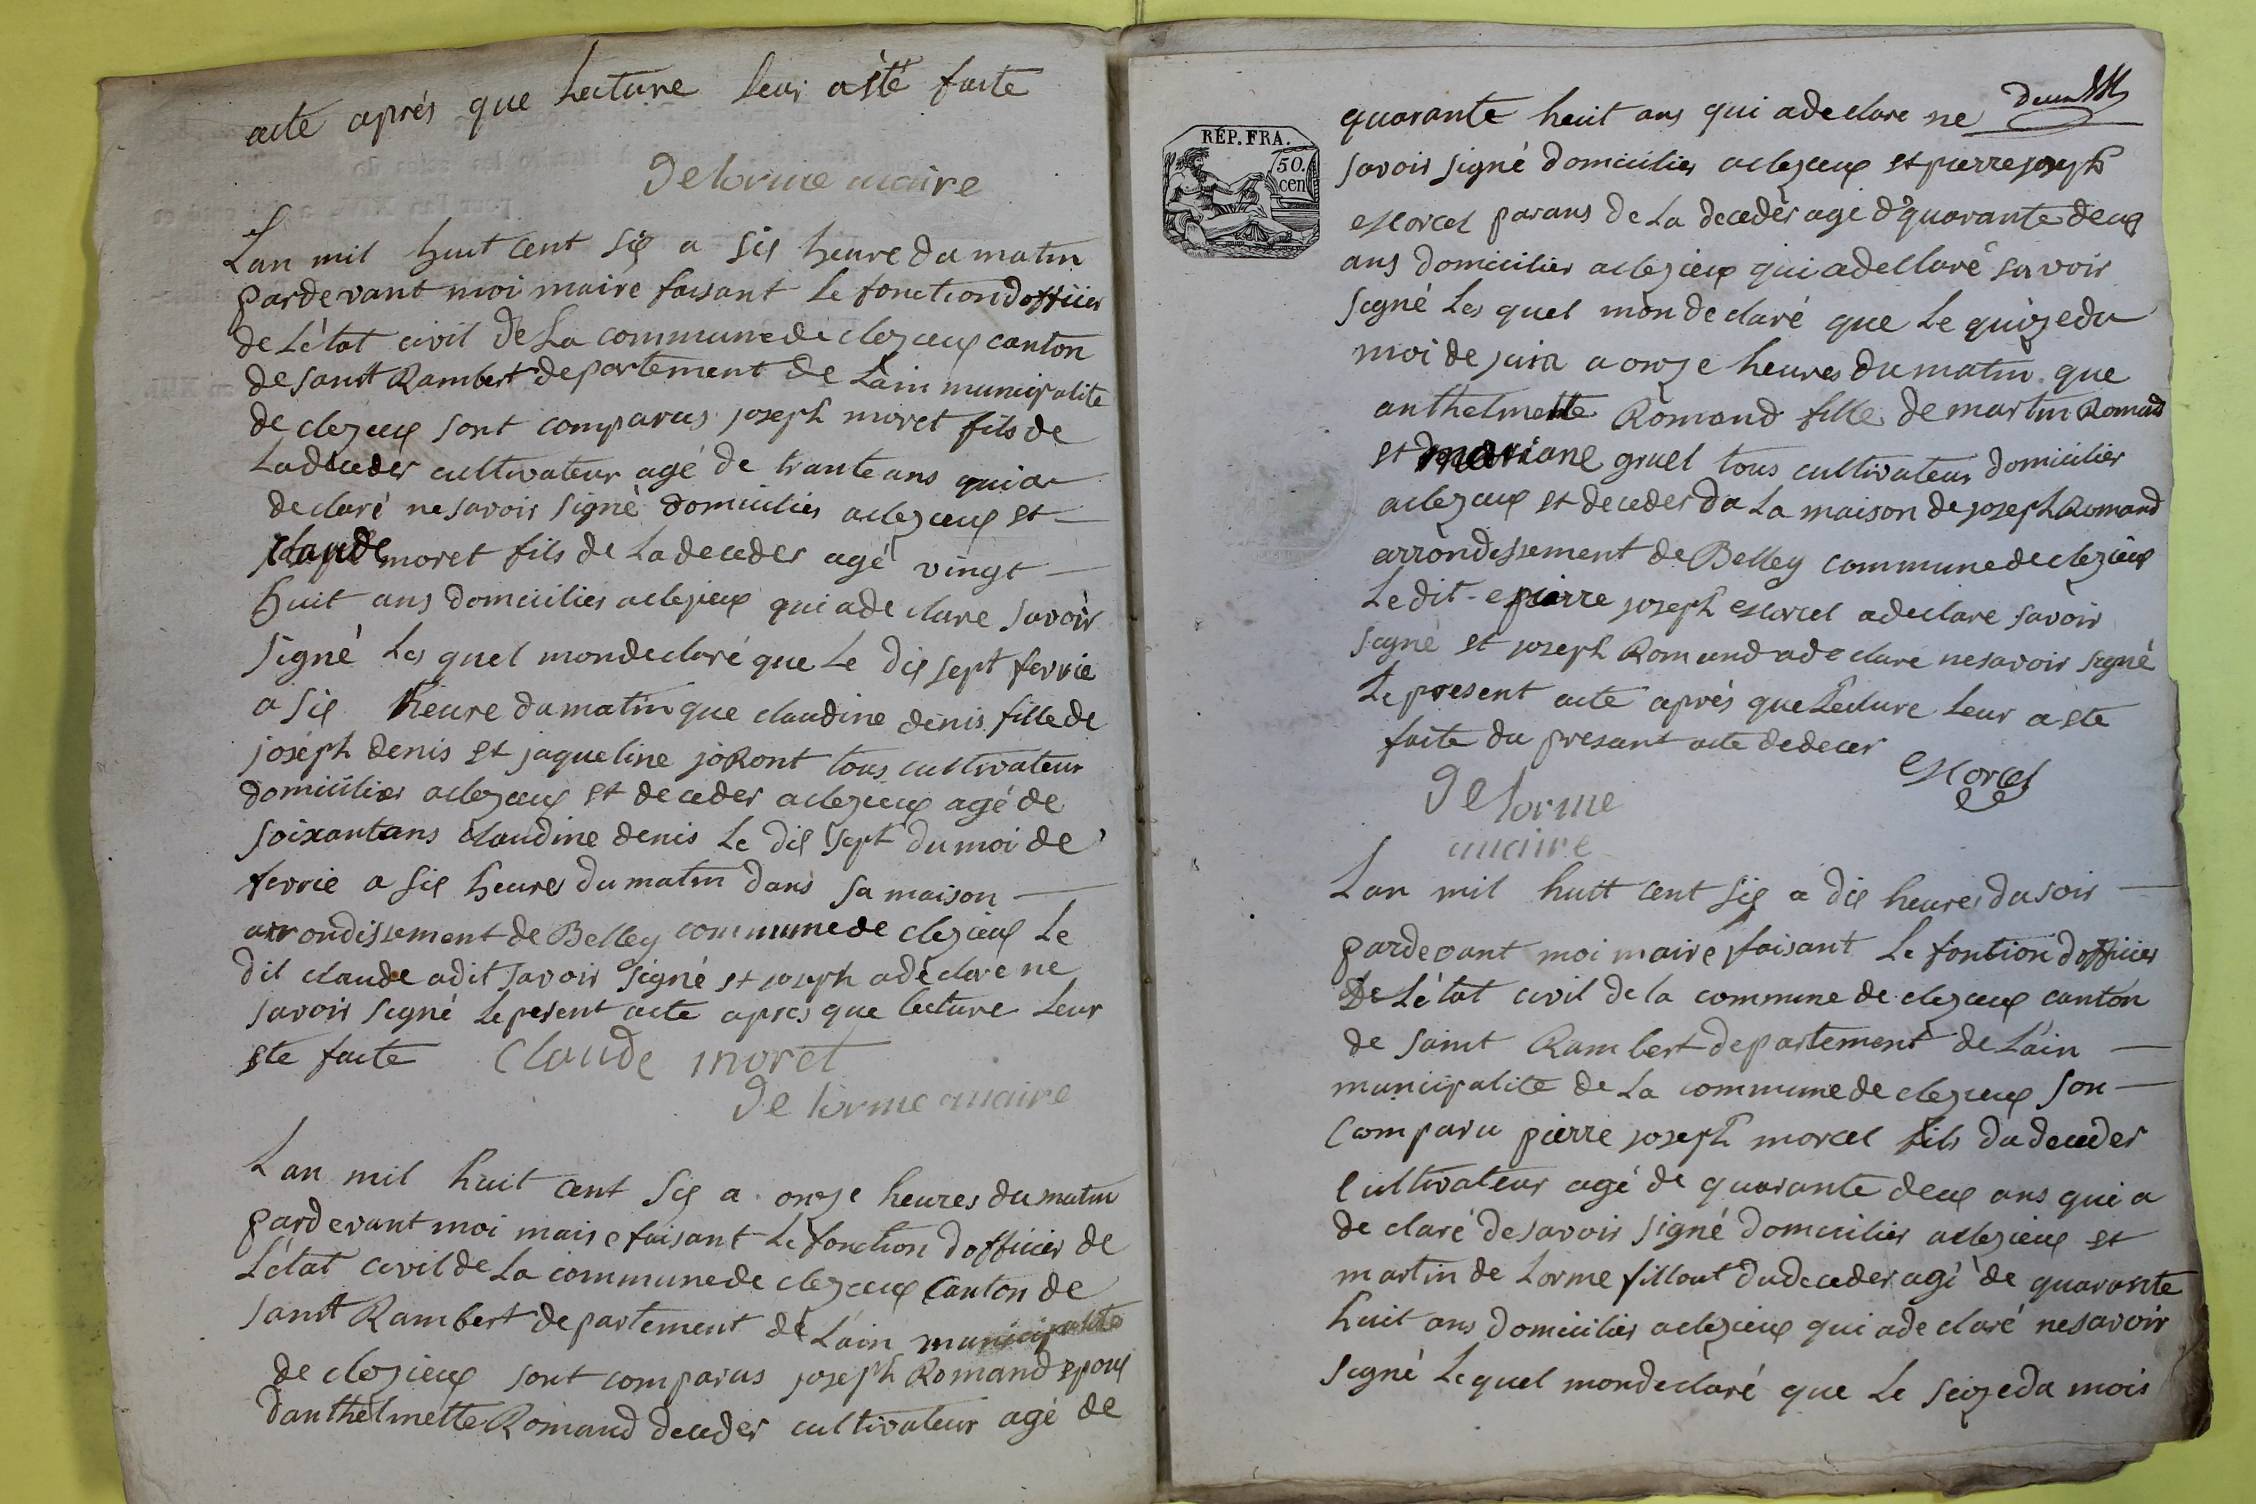 acte après que Lecture leur a été faite
Delorme maire
Lan mil huit cent six a six heure du matin
pardevant moi maire faisant Le fonction dofficier
de Létat civil de La commune de clezieux canton
de sainct Rambert departement de Lain municipalite
de clezieux sont comparus joseph moret fils de
La deceder cultivateur agé de trante ans qui a
declaré ne savoir signé domicilier aclezieux et
claude moret fils de La deceder agé vingt
huit ans domicilier aclezieux qui a declare savoir
signé Les quel mon declaré que Le dix sept fevrie
a six heure du matin que claudine denis fille de
joseph denis et jaqueline joRont tous cultivateur
domicilier aclezieux et deceder aclezieux agé de
soixantans claudine denis Le dix sept du moi de
fevrie a six heures du matin dans sa maison
arrondissement de Belley commune de clezieux Le
dit claude a dit savoir signé et joseph a declaré ne
savoir signé Le pesent acte apres que lecture Leur
ete faite Claude moret
De lorme maire
Lan mil huit cent six a onze heures du matin
pardevant moi maire faisant Le fonction dofficier de
Létat civil de La commune de clezieux Canton de
sainct Rambert departement de Lain municipalité
de clezieux sont comparus joseph Romand epoux
danthelmette Romand deceder cultivateur agé de
deux
RÉP. FRA.
50.
cen
quarante huit ans qui a declare ne
savoir signé domicilier aclezieux et pierre joseph
Morcel parans de La deceder agé d'quarante deux
ans domicilier aclezieux qui a declaré savoir
signé Les quel mon declaré que Le quize du
moi de juin a onze heures du matin que
anthelmette Romand fille de martin Romand
et mariane gruel tous cultivateur domicilier
aclezieux et deceder da La maison de joseph Romand
arrondissement de Belley commune de clezieux
Le dit pierre joseph Morcel a declare savoir
signe et joseph Romand a declare ne savoir signé
Le present acte aprés que Lecture Leur a ete
faite du presant acte de decer
Morcel
De lorme
maire
Lan mil huit cent six a dix heures du soir
pardevant moi maire faisant Le fontion dofficier
de Létat civil de la commune de clezieux canton
de saint Rambert departement de Lain
municipalite de La commune de clezieux son
Comparu pierre joseph morcel fils du deceder
Cultivateur agé de quarante deux ans qui a
de claré de savoir signé domicilier aclezieux et
martin de Lorme fillout du deceder agé de quarante
huit ans domicilier aclezieux qui a de claré ne savoir
signé Le quel mon declaré que Le seize du mois